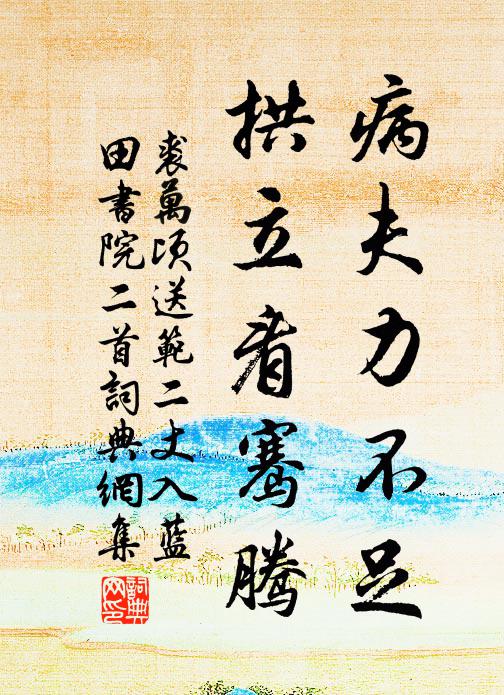 病夫力不足
拱立看骞腾
裘萬頃送範二丈入藍
田書院二首詞典網集
詞典
网印